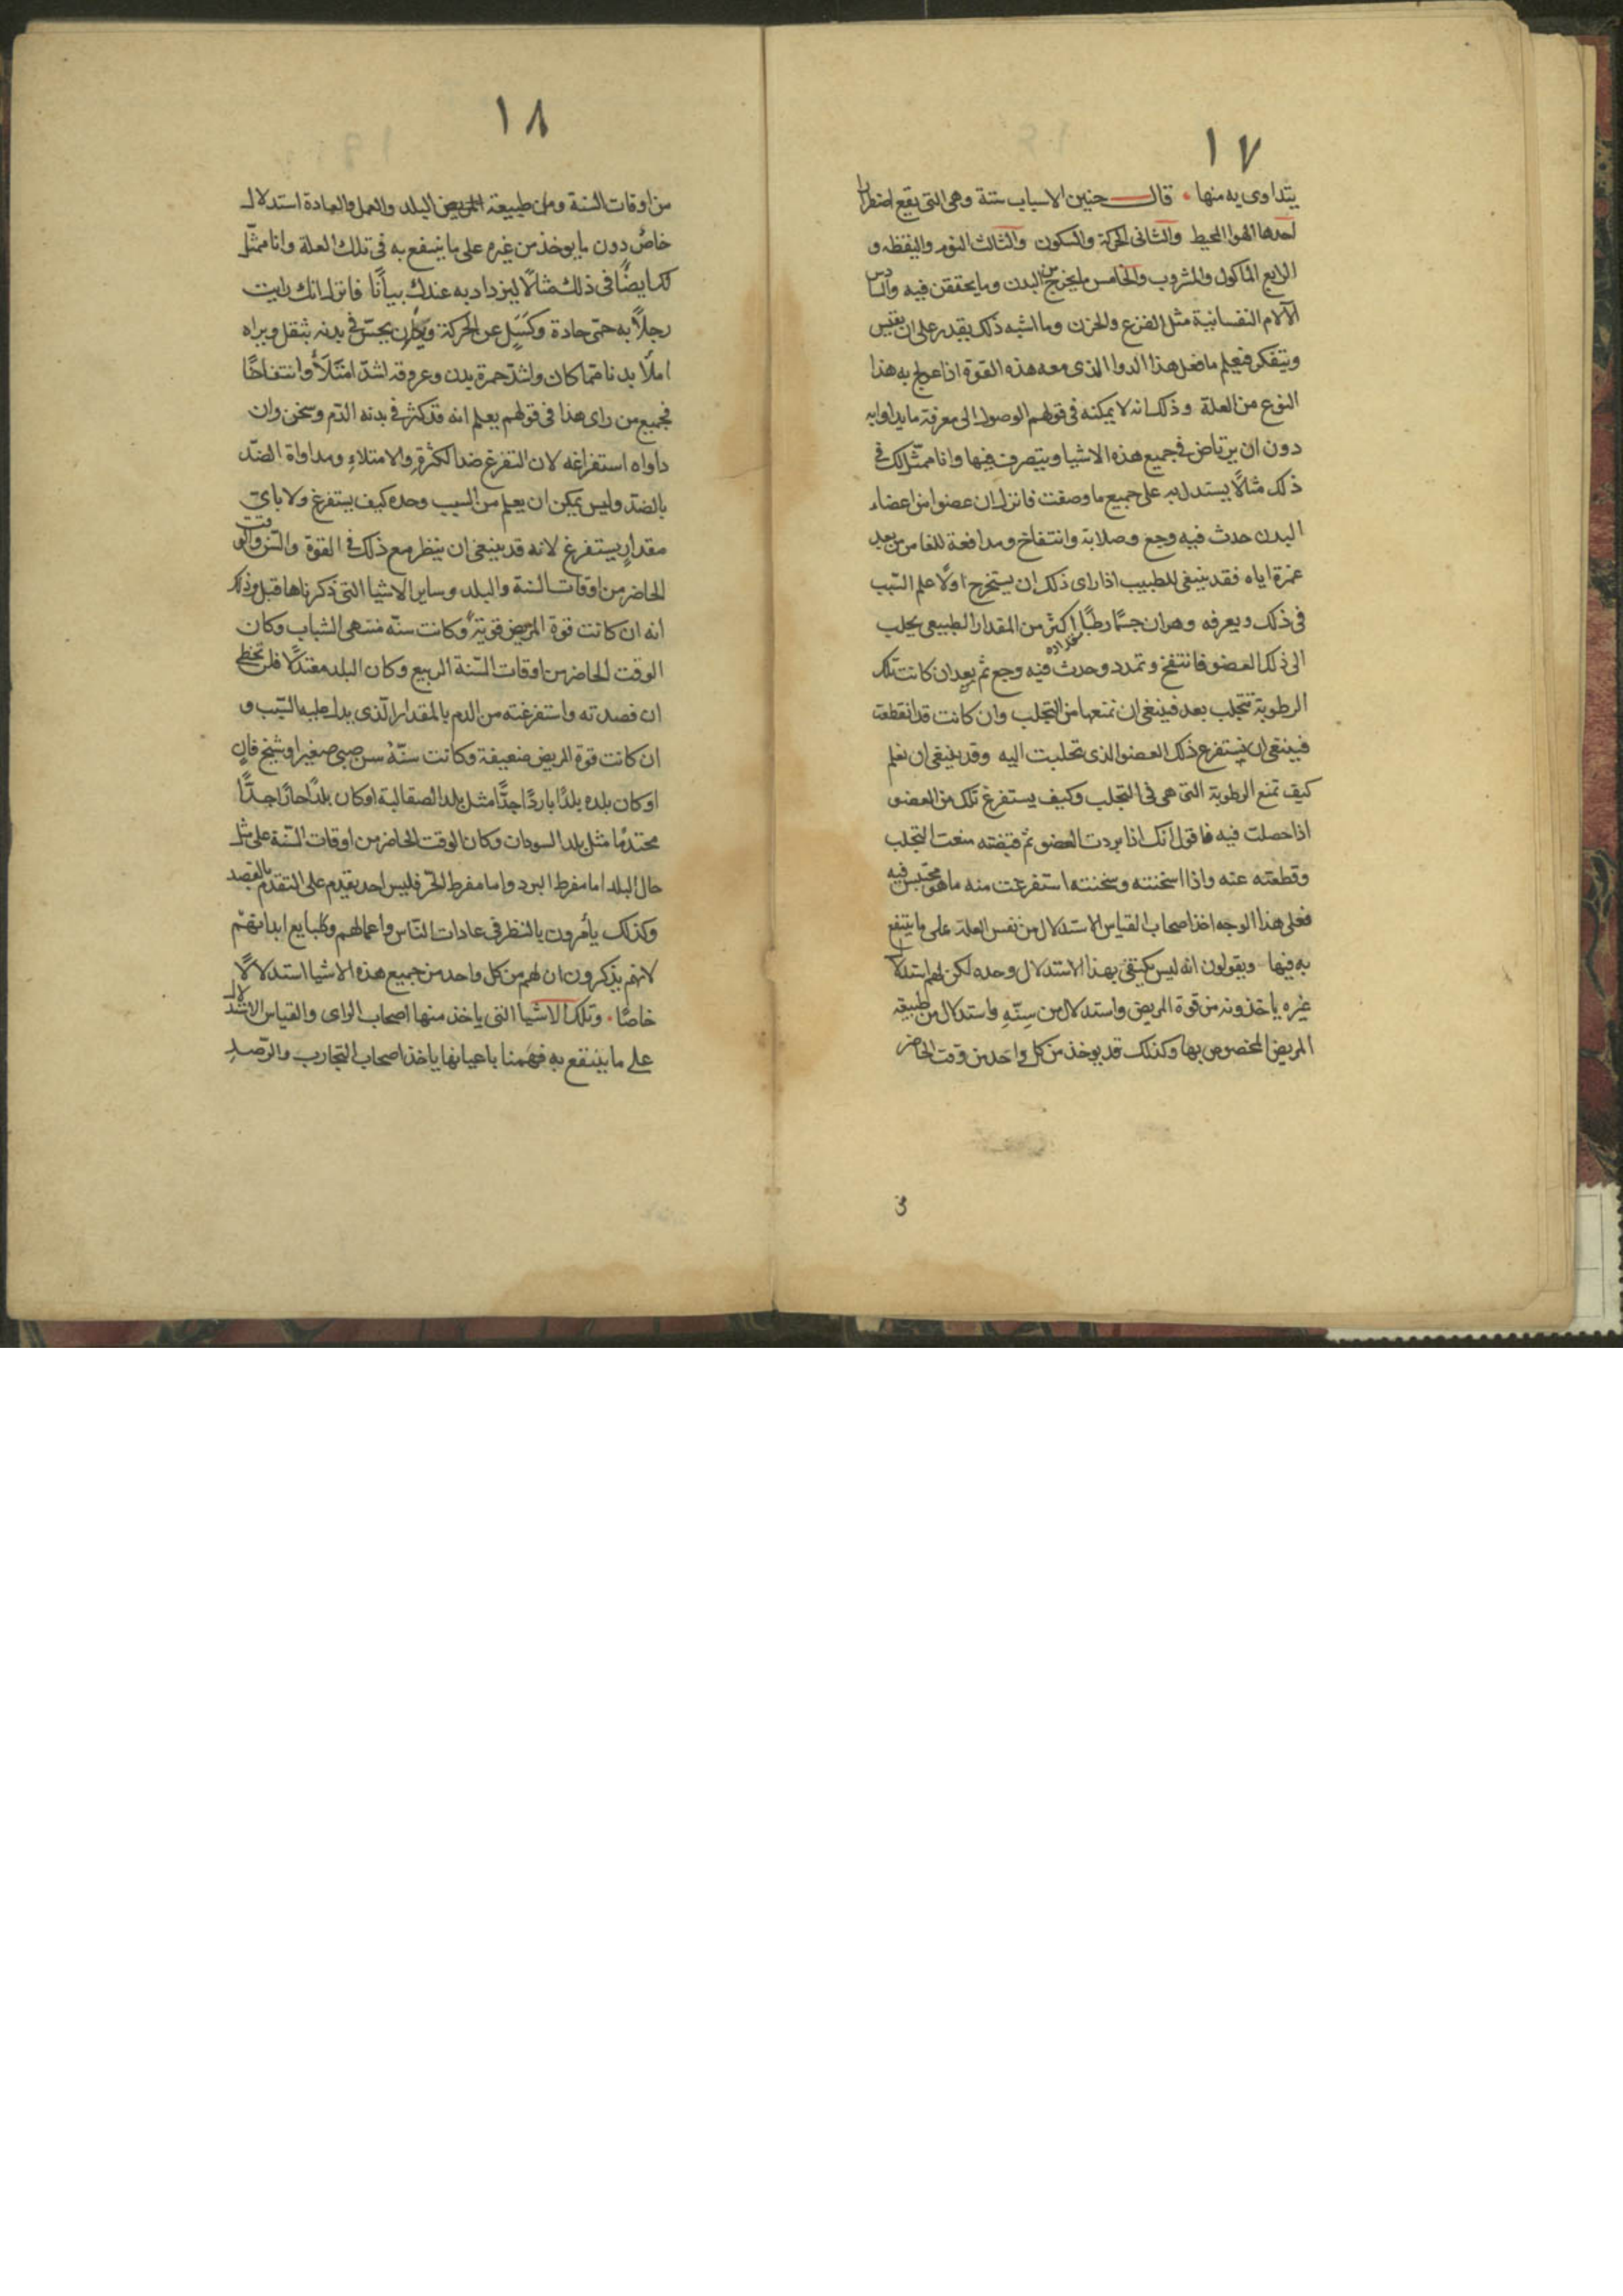 ١٧
يتداوى به منها . قال حنين الاسباب ستة وهى التى يقع اضطرارا
احدها الهوا المحيط والثانى الحركة والسكون والثالث النوم واليقظه و
الرابع الماكول والمشروب والخامس ما يخرج من البدن وما يحتقن فيه والسادس
الآلام النفسانية مثل الفزع والحزن وما اشبه ذلك يقدر على ان يقيس
ويتفكر فيعلم ما فعل هذا الدوا الذى معه هذه القوة اذا عولج به هذا
النوع من العلة وذلك انه لا يمكنه فى قولهم الوصول الى معرفة ما يداوا به
دون ان يرتاض فى جميع هذه الاشيا ويتصرف فيها وانا ممثل لك فى
ذلك مثالًا يستدل به على جميع ما وصفت فانزل ان عضوا من اعضاء
البدن حدث فيه وجع وصلابة وانتفاخ ومدافعة للغامز من بعد
غمزة اياه فقد ينبغى للطبيب اذا راى ذلك ان يستخرج اولًا علم السبب
فى ذلك ويعرفه وهو ان جسمًا رطبًا اكثر من المقدار الطبيعى يجلب
الى ذلك العضو فانتفخ وتمدد وحدث فيه وجع ثم بعد ان كانت تلك
الرطوبة تتجلب بعد فينبغى ان نمنعها من التجلب وان كانت قد انقطعت
فينبغى ان يستفرغ ذلك العضو الذى تحلبت اليه وقد ينبغى ان نعلم
كيف تمنع الرطوبة التى هى فى التجلب وكيف يستفرغ تلك من العضو
اذا حصلت فيه فاقول انك اذا بردت العضو ثم قبضته منعت التجلب
وقطعته عنه واذا اسخنته وسخنته استفرغت منه ما هو محتبس فيه
فعلى هذا الوجه اخذ اصحاب القياس الاستدلال من نفس العلة على ما ينتفع
به فيها ويقولون انه ليس يكتفى بهذا الاستدلال وحده لكن لهم استدلالا
غيره ياخذونه من قوة المريض واستدلال من سنّهِ واستدلال من طبيعة
المريض المخصوص بها وكذلك قد يوخذ من كل واحد من وقت الحاضر
١٨
من اوقات السنة ومن طبيعة المريض البلد والعمل والعادة استدلال
خاص دون ما يوخذ من غيره على ما ينتفع به فى تلك العلة وانا ممثّل
لك ايضًا فى ذلك مثالًا ليزداد به عندك بيانًا فانزل انك رايت
رجلًا به حمّى حادة وكَسَلٍ عن الحركة ويكون يحسّ فى بدنه بثقل ويراه
املأ بدنا مما كان واشدّ حمرة بدن وعروقه اشدّ امتَلأً وانتفاخًا
فجميع من راى هذا فى قولهم يعلم انه قد كثر فى بدنه الدّم وسخن وان
داواه استفراغه لان التفرغ ضد الكثرة والامتلاءِ ومداواة الضدّ
بالضد وليس يمكن ان يعلم من السبب وحده كيف يستفرغ ولا باىّ
مقدارٍ يستفرغ لانه قد ينبغى ان ينظر مع ذلك فى القوة والسّن والوقت
الحاضر من اوقات السنة والبلد وساير الاشيا التى ذكرناها قبل وذلك
انه ان كانت قوة المريض قوية وكانت سنّه منتهى الشباب وكان
الوقت الحاضر من اوقات السّنة الربيع وكان البلد معتدلًا فلن تخطى
ان فصدته واستفرغته من الدم بالمقدار الّذى يدل عليه السّبب و
ان كانت قوة المريض ضعيفة وكانت سنّهُ سن صبىٍ صغير او شيخ فانٍ
او كان بلده بلدًا باردًا جدًّا مثل بلد الصقالبة او كان بلدًا حارًا جدًّا
محتدمًا مثل بلد السودان وكان الوقت الحاضر من اوقات السّنة على مثل
حال البلد اما مفرط البرد واما مفرط الحّر فليس احد يقدم على التقدّم بالفصد
وكذلك يأمرون بالنظر فى عادات النّاس واعمالهم وطبايع ابدانهم
لانهم يذكرون ان لهم من كل واحد من جميع هذه الاشيا استدلالًا
خاصًّا . وتلك الاشيا التى ياخذ منها اصحاب الراى والقياس الاستدلال
على ما ينتفع به فمنها باعيانها ياخذ اصحاب التجارب والرّصدِ